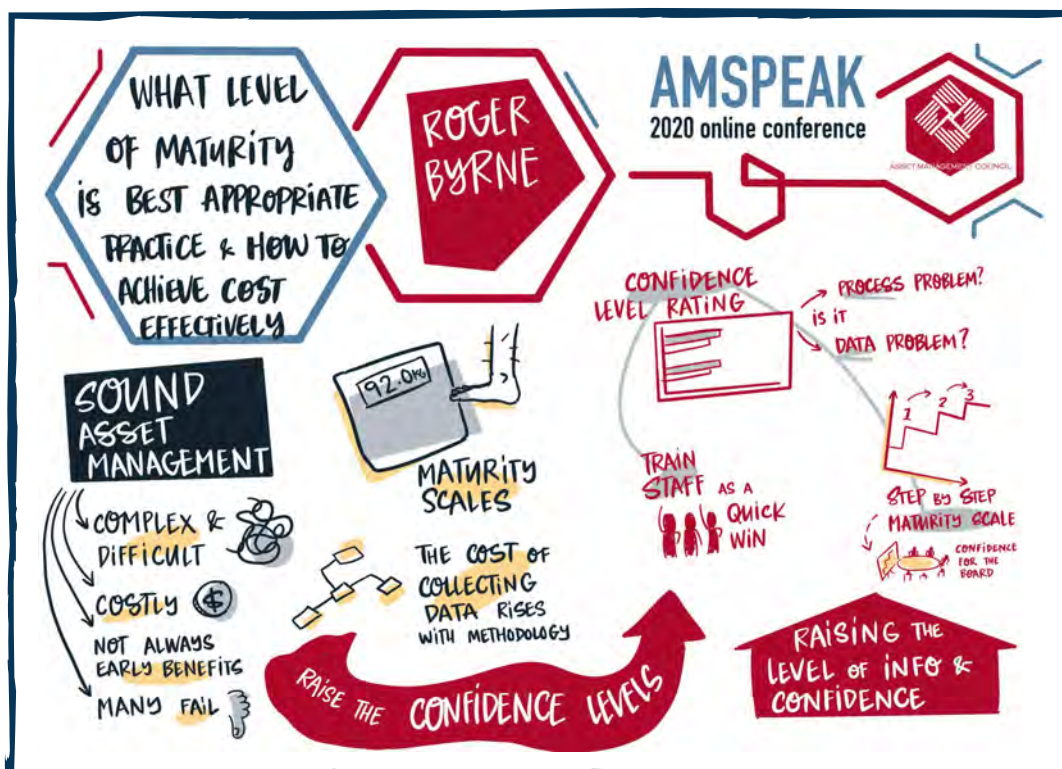 WHAT LEVEL
OF MATURITY
iS BEST APPROPRIATE
PRACTICE & HOW TO
ACHiEVE COST
EFFECTiVELY
ROGER
BYRNE
AMSPEAK
2020 online conference
ASSET MANAGEMENT COUNCIL
SOUND
ASSET
MANAGEMENT
COMPLEX &
DiFFiCULT
COSTLY $
NOT ALWAYS
EARLY BENEFiTS
MANY FAiL
92.0KG
MATURiTY
SCALES
THE COST OF
COLLECTiNG
DATA RiSES
WiTH METHODOLOGY
RAiSE THE CONFiDENCE LEVELS
CONFiDENCE
LEVEL RATiNG
PROCESS PROBLEM?
iS iT
DATA PROBLEM?
TRAiN
STAFF AS A
QUiCK
WiN
1 2 3
STEP BY STEP
MATURiTY SCALE
CONFiDENCE
FOR THE
BOARD
RAiSiNG THE
LEVEL OF iNFO &
CONFiDENCE